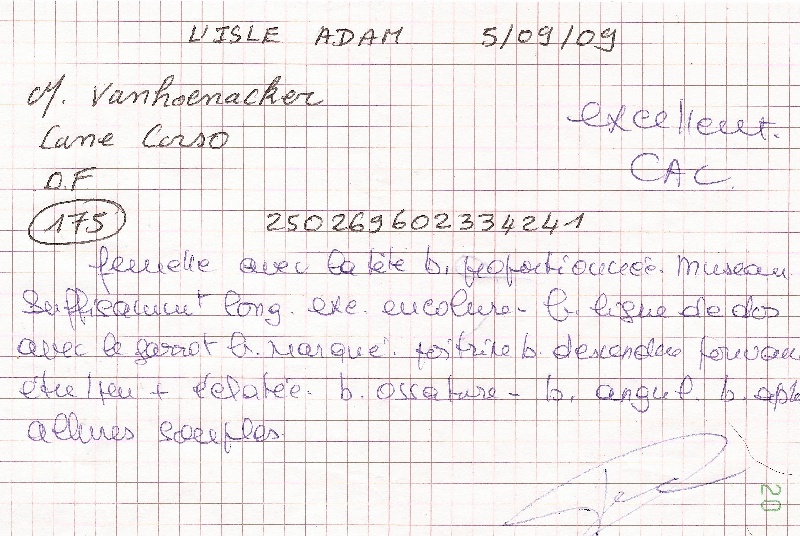 L'ISLE ADAM 5/09/09
M. Vanhoenacker
Cane Corso
excellent.
CAC.
O.F
175 250269602334241
femelle avec la tête b. proportionnée. Museau
suffisamment long. exc. encolure - b. ligne de dos
avec le garrot b. marqué. poitrine b. descendue pouvant
être 1 peu + éclatée. b. ossature - b. angul. b. apl
allures souples.
20